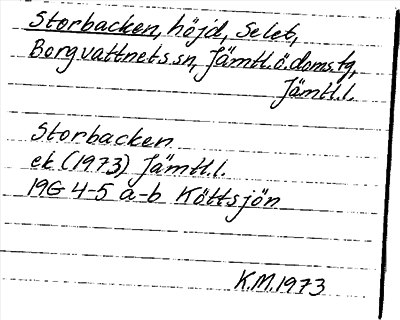 Storbacken, höjd, Selet,
Borgvattnets sn, Jämtl.ö.doms.tg,
Jämtl.l.
Storbacken
ek (1973) Jämtl.l.
19G 4-5 a-b Köttsjön
K.M.1973